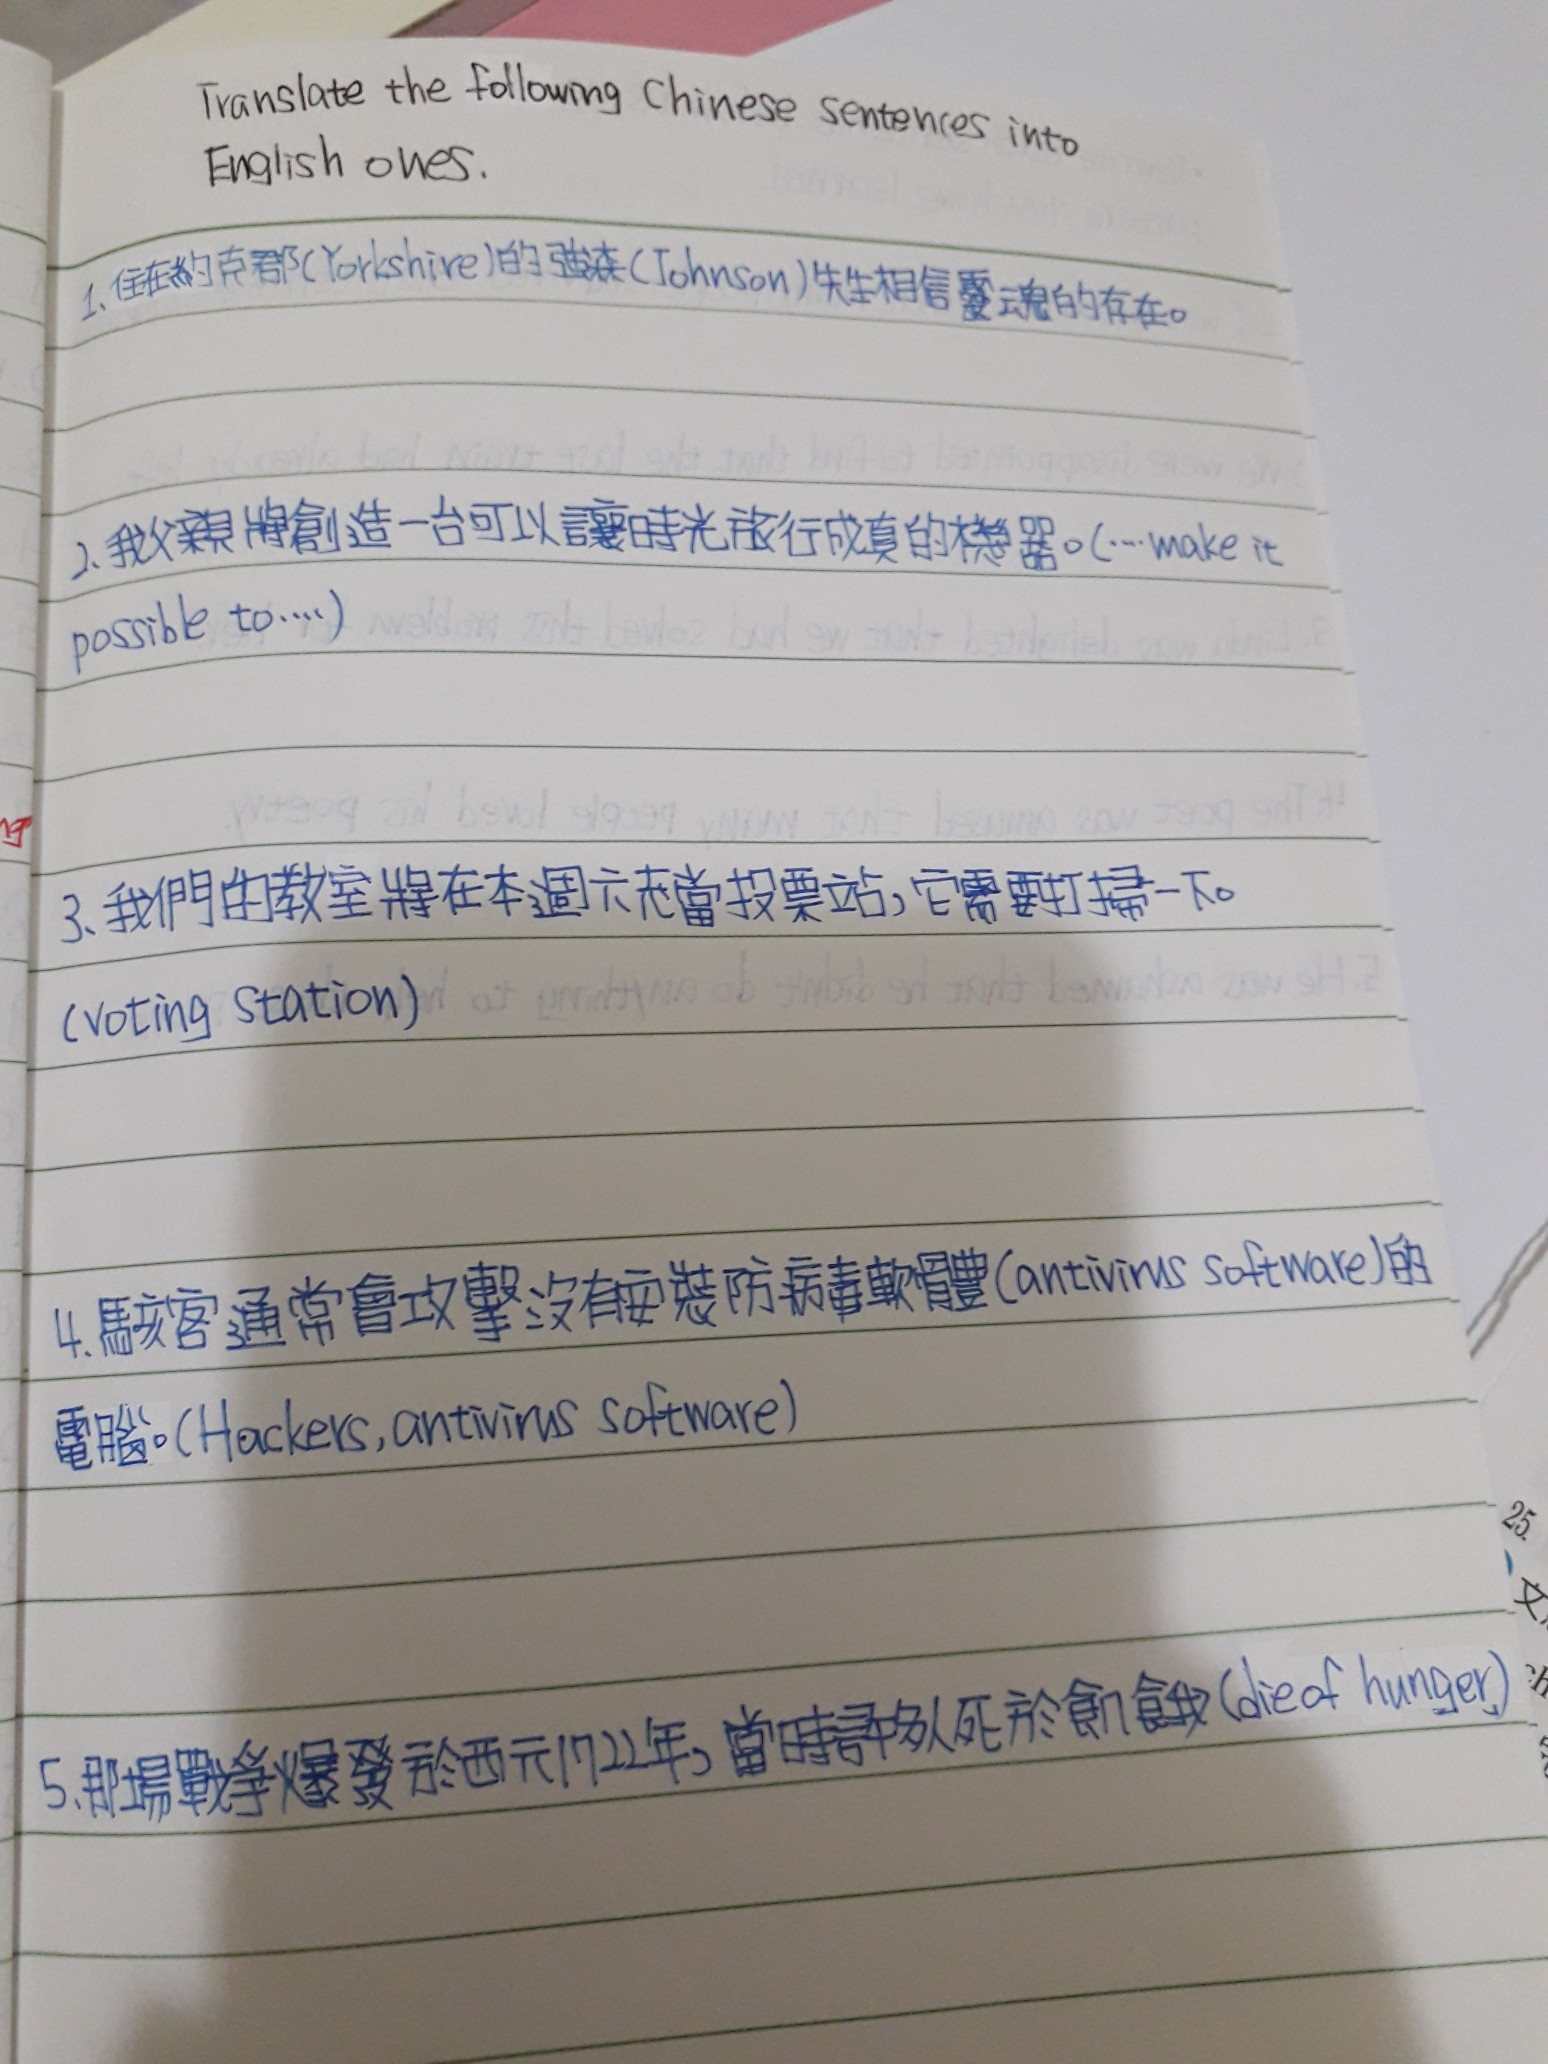 Translate the following Chinese sentences into
English ones.
1. 住在約克郡(Yorkshire)的強森(Johnson)先生相信靈魂的存在。
2. 我父親將創造一台可以讓時光旅行成真的機器。(....make it
possible to.....)
3. 我們的教室將在本週六充當投票站,它需要打掃一下。
(voting station)
4. 駭客通常會攻擊沒有安裝防病毒軟體(antivirus software)的
電腦。(Hackers, antivirus software)
5. 那場戰爭爆發於西元1722年,當時許多人死於飢餓(die of hunger)
25.
文